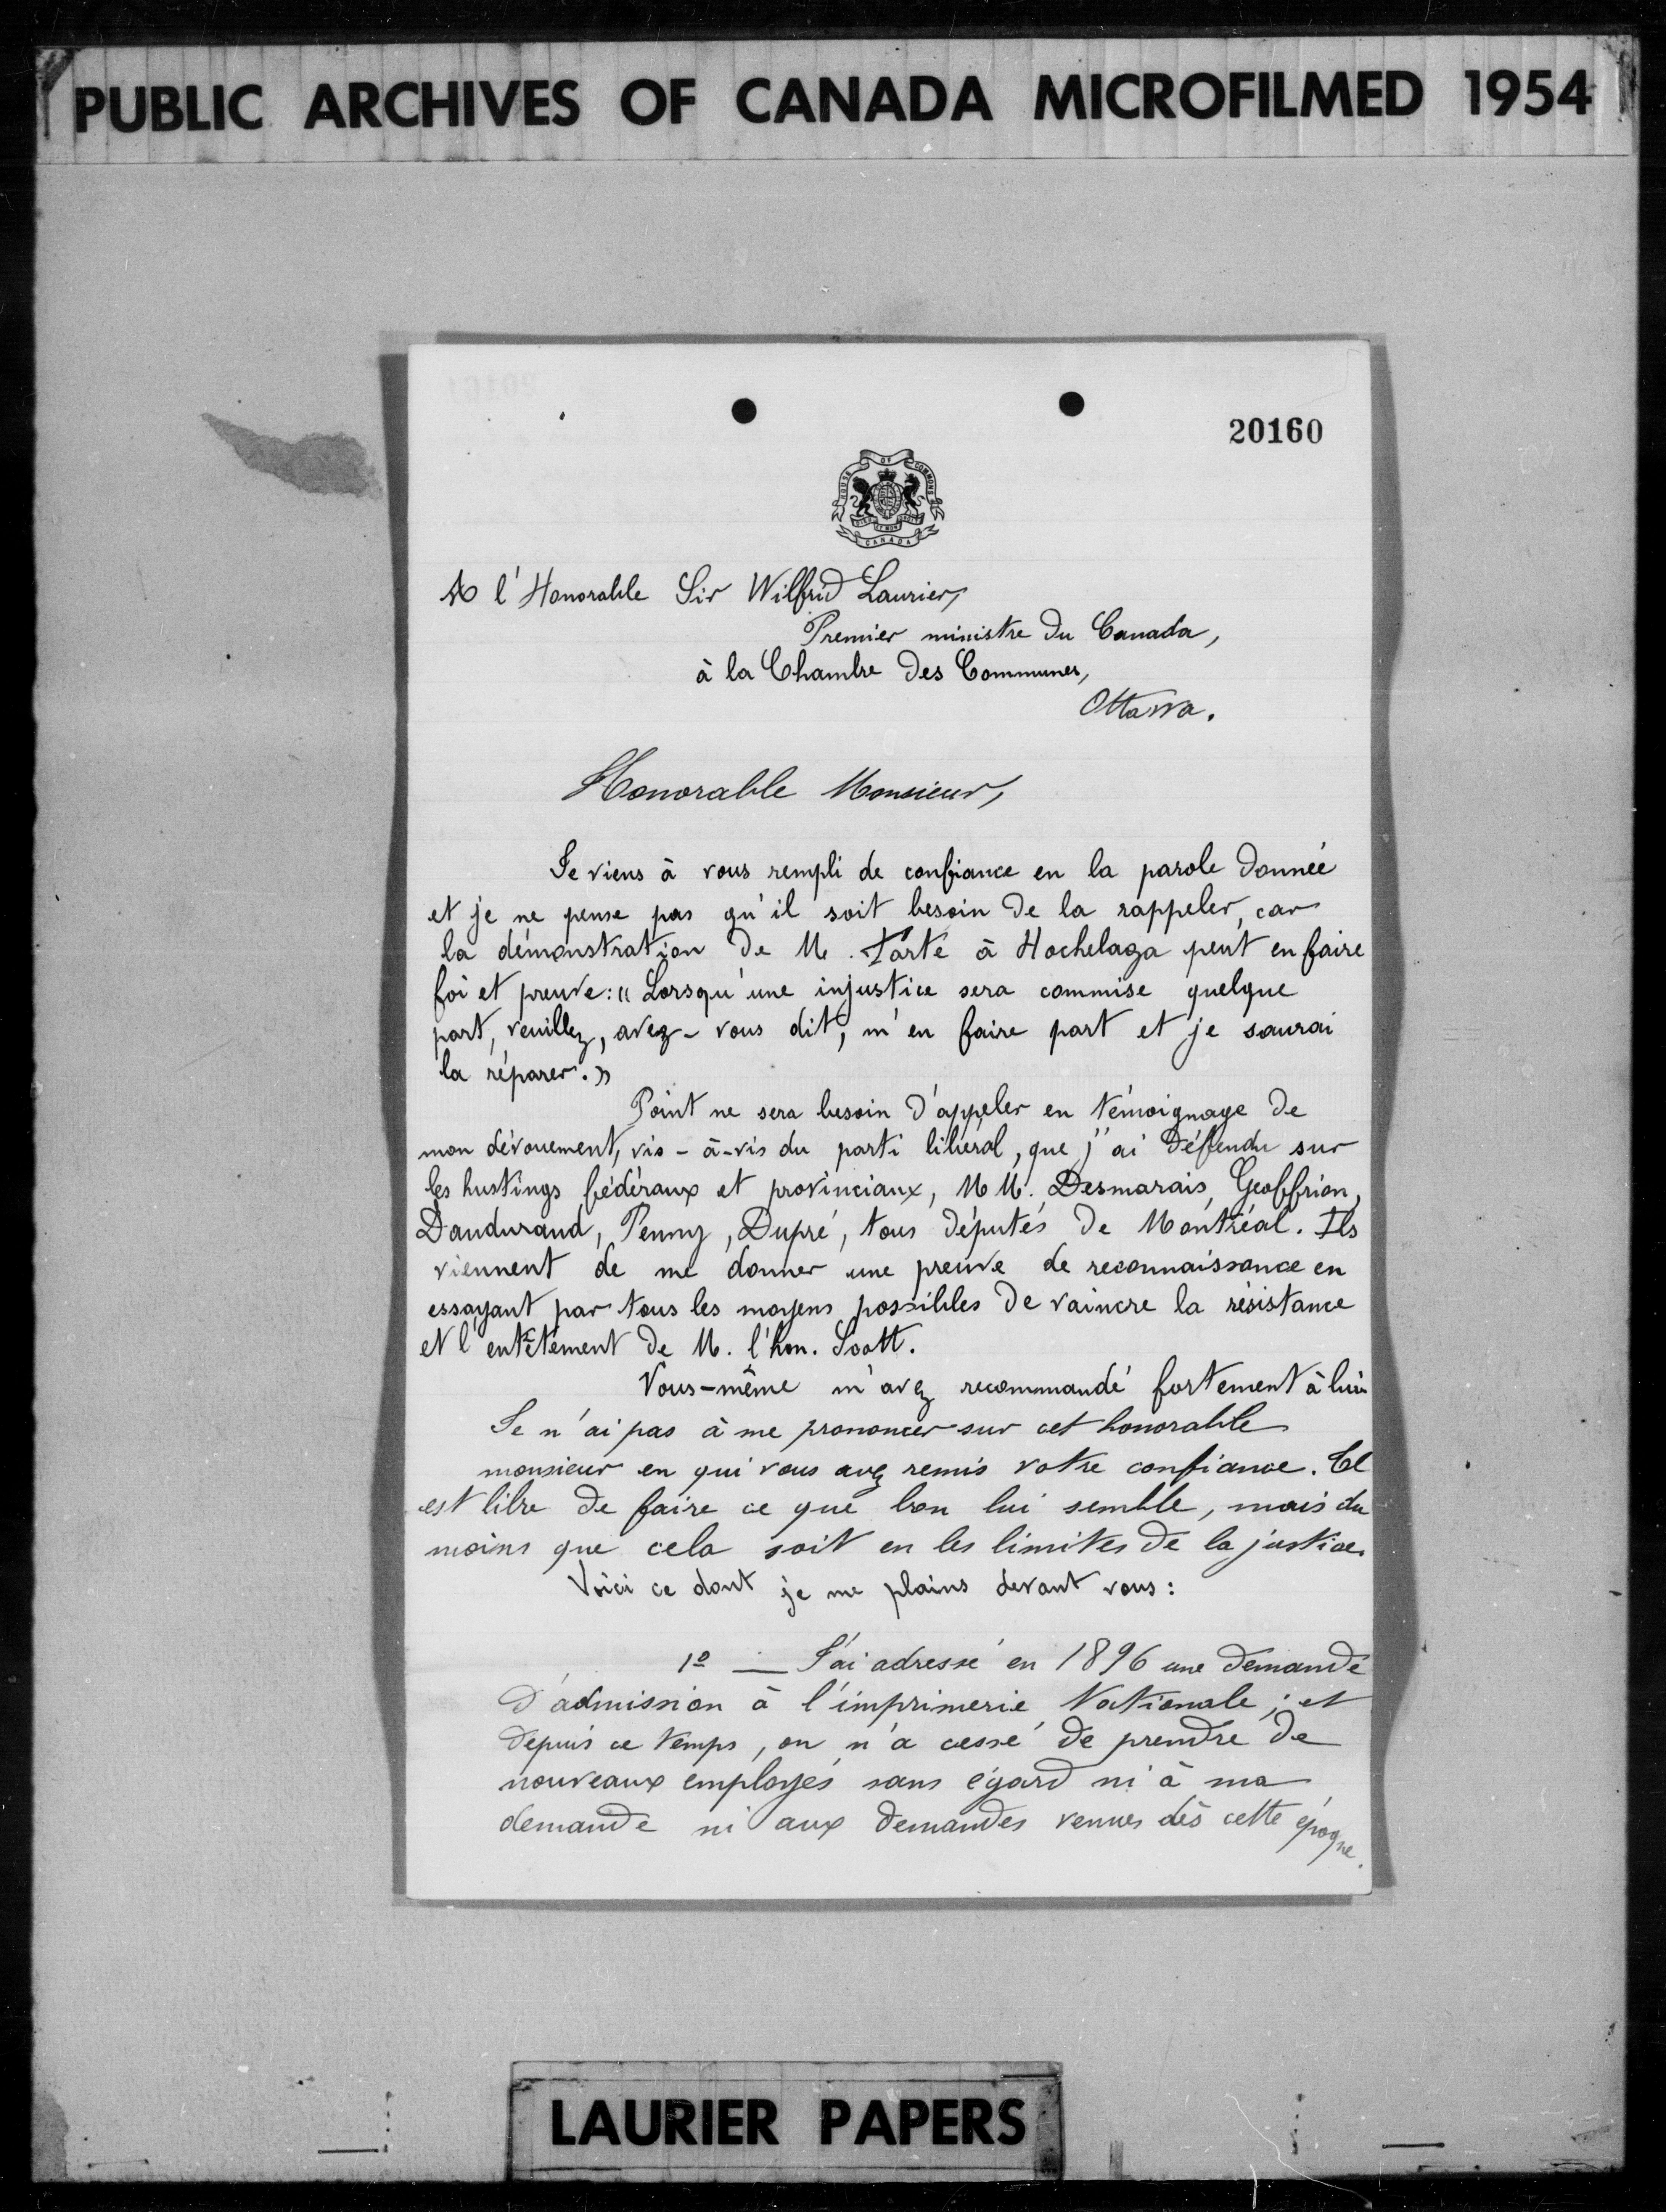 PUBLIC ARCHIVES OF CANADA MICROFILMED 1954
20160
HOUSE OF COMMONS
CANADA
A l'Honorable Sir Wilfrid Laurier,
Premier ministre du Canada,
à la Chambre des Communes,
Ottawa.
Honorable Monsieur,
Je viens à vous rempli de confiance en la parole donnée
et je ne pense pas qu'il soit besoin de la rappeler, car
la démonstration de M. Tarte à Hochelaga peut en faire
foi et preuve: « Lorsqu'une injustice sera commise quelque
part, veuillez, avez-vous dit, m'en faire part et je saurai
la réparer. »
Point ne sera besoin d'appeler en témoignage de
mon dévouement, vis-à-vis du parti libéral, que j'ai défendu sur
les hustings fédéraux et provinciaux, MM. Desmarais, Geoffrion,
Dandurand, Penny, Dupré, tous députés de Montréal. Ils
viennent de me donner une preuve de reconnaissance en
essayant par tous les moyens possibles de vaincre la résistance
et l'entêtement de M. l'hon. Scott.
Vous-même m'avez recommandé fortement à lui.
Je n'ai pas à me prononcer sur cet honorable
monsieur en qui vous avez remis votre confiance. Il
est libre de faire ce que bon lui semble, mais du
moins que cela soit en les limites de la justice.
Voici ce dont je me plains devant vous:
1º — J'ai adressé en 1896 une demande
d'admission à l'imprimerie Nationale; et
depuis ce temps, on n'a cessé de prendre de
nouveaux employés sans égard ni à ma
demande ni aux demandes venues dès cette époque.
LAURIER PAPERS